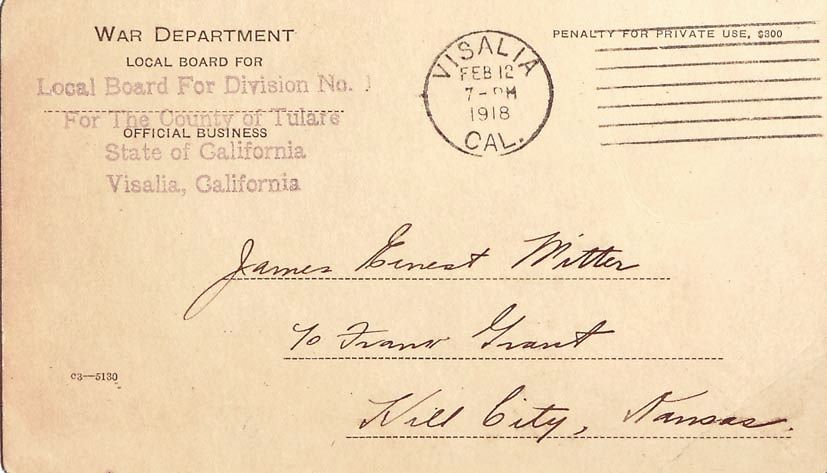 WAR DEPARTMENT
LOCAL BOARD FOR
Local Board For Division No. 1
For The County of Tulare
OFFICIAL BUSINESS
State of California
Visalia, California
VISALIA
FEB 12
7-PM
1918
CAL.
PENALTY FOR PRIVATE USE, $300
James Ernest Witter
c/o Frank Grant
Hill City, Kansas.
c3—5130